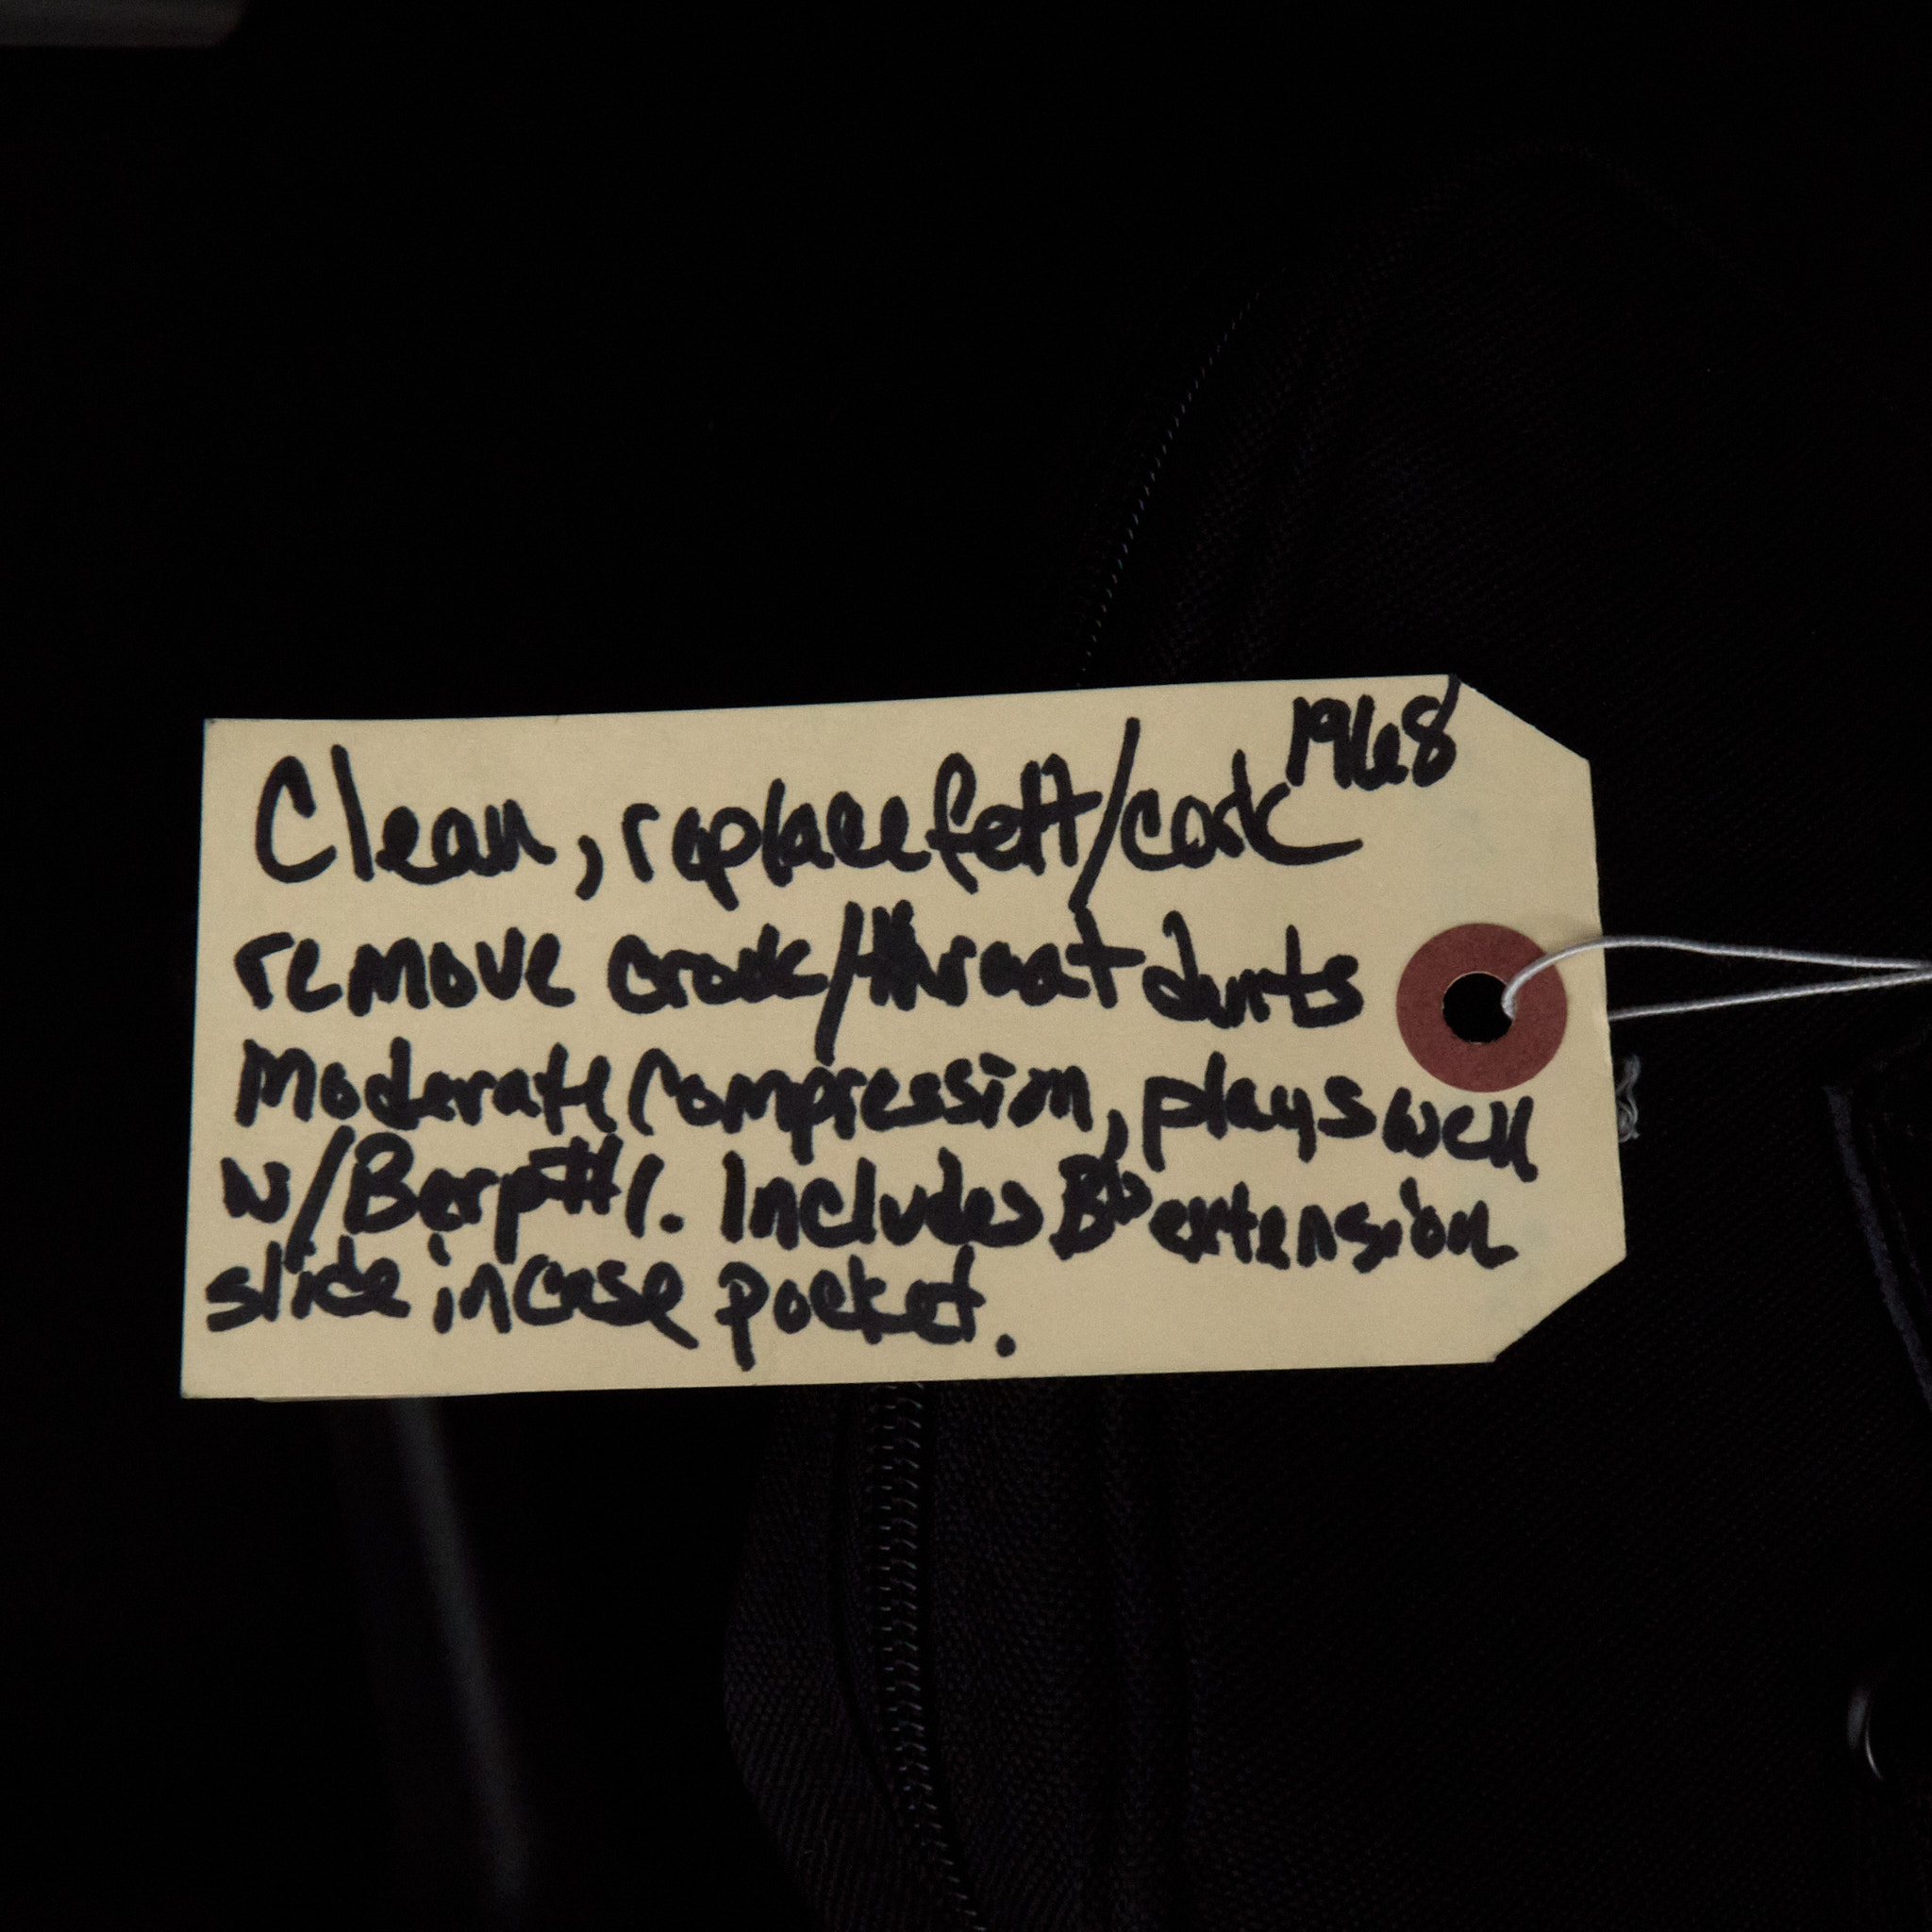 1968
Clean, replace felt/cork
remove crook/throat dents
Moderate Compression, plays well
w/Berp #1. Includes Bb extension
slide in case pocket.